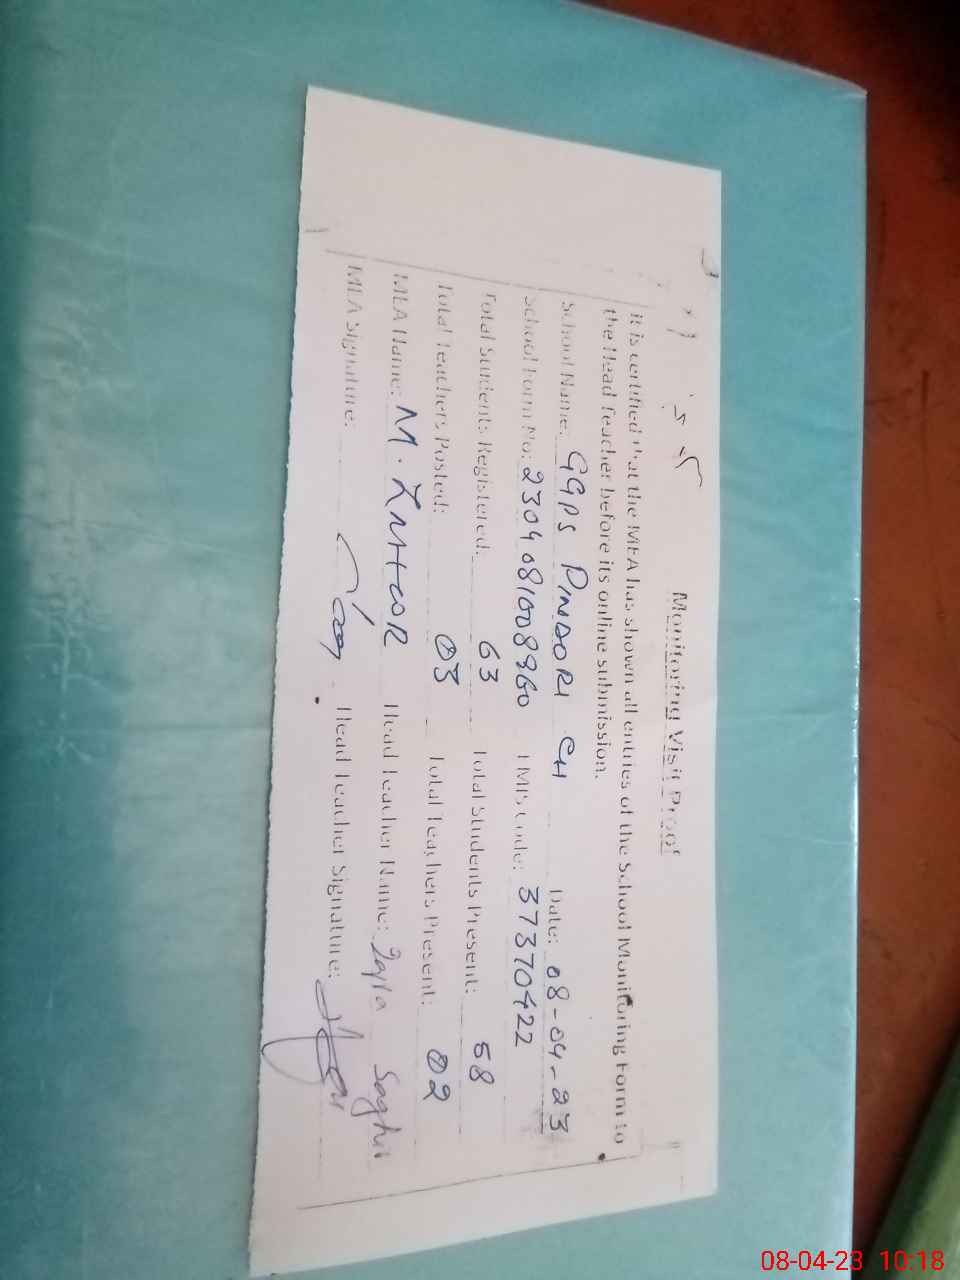 Monitoring Visit Proof
It is certified that the MEA has shown all entries of the School Monitoring Form to
the Head Teacher before its online submission.
School Name: GGPS PINDORI CH Date: 08-04-23
School Form No: 2304081008960 EMIS Code: 37370422
Total Students Registered: 63 Total Students Present: 58
Total Teachers Posted: 03 Total Teachers Present: 02
MEA Name: M. Head Teacher Name: Saghir
MEA Signature: Head Teacher Signature:
08-04-23 10:18